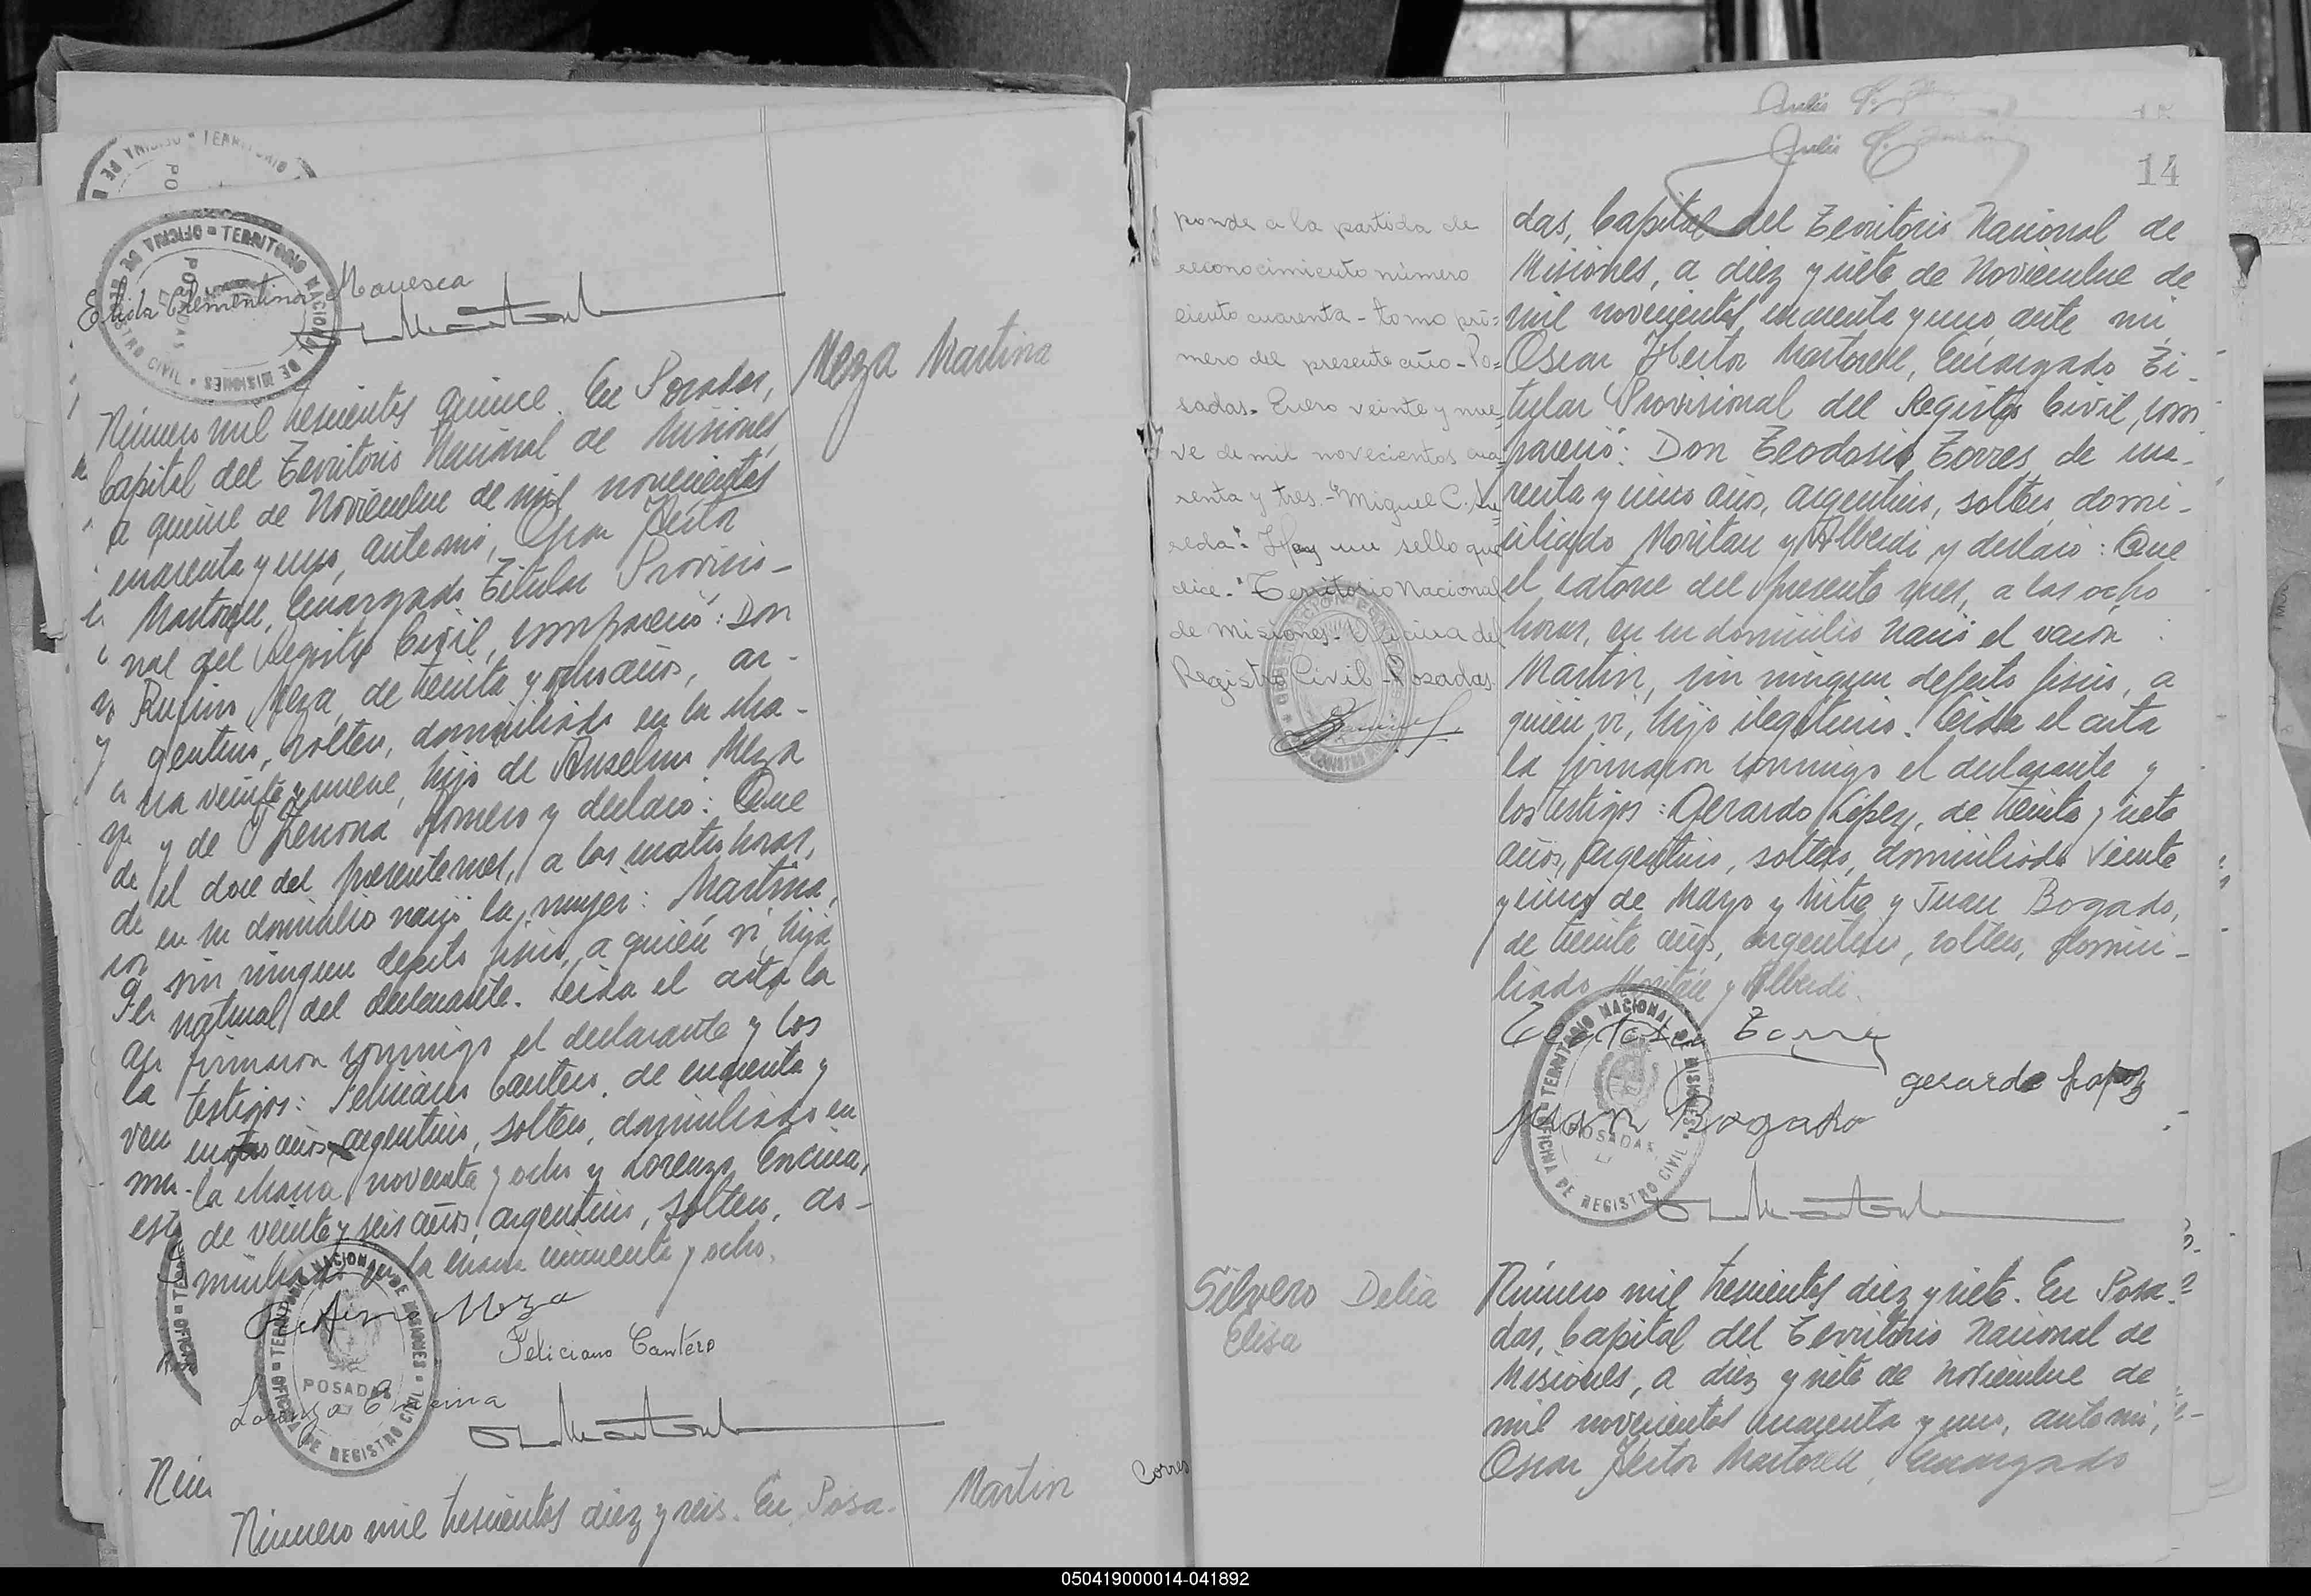 Elida Clementina Mauesca
Meza Martina
Número mil trescientos quince. En Posadas,
Capital del Territorio Nacional de Misiones,
a quince de Noviembre de mil novecientos
cuarenta y uno, ante mi, Oscar Hector
Martorell, Encargado Titular Proviso-
nal del Registro Civil, compareció: Don
Rufino Meza, de treinta y ocho años, ar-
gentino, soltero, domiciliado en la cha-
cra veinte y nueve, hijo de Anselmo Meza
y de Romero y declaró: Que
el doce del presente mes, a las cuatro horas,
en su domicilio nació la mujer: Martina,
sin ningun defecto fisico, a quién vi, hija
natural del declarante. Leida el acta la
firmaron conmigo el declarante y los
testigos: Feliciano Cantero, de cuarenta y
cuatro años, argentino, soltero, domiciliado en
la chacra noventa y ocho y Lorenzo Encina,
de veinte y seis años, argentino, soltero, do-
miciliado en la chacra cincuenta y ocho.
Rufino Meza
Feliciano Cantero
Lorenzo Encina
OFICINA DE REGISTRO CIVIL TERRITORIO NACIONAL DE MISIONES
POSADAS
Núm
Número mil trescientos diez y seis. En Posa-
Martin
Corres
ponde a la partida de
reconocimiento número
ciento cuarenta - tomo pri=
mero del presente año - Po=
sadas. Enero veinte y nue
ve de mil novecientos cua
renta y tres.- "Miguel C.
Hay un sello que
dice.- "Territorio Nacional
de Misiones - Oficina del
Registro Civil - Posadas
14
das, Capital del Territorio Nacional de
Misiones, a diez y siete de Noviembre de
mil novecientos cuarenta y uno, ante mi
Oscar Hector Martorell, Encargado Ti-
tular Provisional del Registro Civil, com
pareció: Don Teodosio Torres, de cua-
renta y cinco años, argentino, soltero, domi-
ciliado Moritan y Alberdi y declaró: Que
el catorce del presente mes, a las ocho
horas, en su domicilio nació el varón
Martin, sin ningun defecto fisico, a
quién vi, hijo ilegitimo. Leida el acta
la firmaron conmigo el declarante y
los testigos: Gerardo López, de treinta y siete
años, argentino, soltero, domiciliado Veinte
y cinco de Mayo y Mitre y Juan Bogado,
de treinta años, argentino, soltero, domici-
liado Moritán y Alberdi.
Teodosio Torres
gerardo Lopez
Juan Bogado
OFICINA DE REGISTRO CIVIL TERRITORIO NACIONAL DE MISIONES
POSADAS
Silvero Delia
Elisa
Número mil trescientos diez y siete. En Posa-
das, Capital del Territorio Nacional de
Misiones, a diez y siete de Noviembre de
mil novecientos cuarenta y uno, ante mi,
Oscar Hector Martorell, Encargado
050419000014-041892